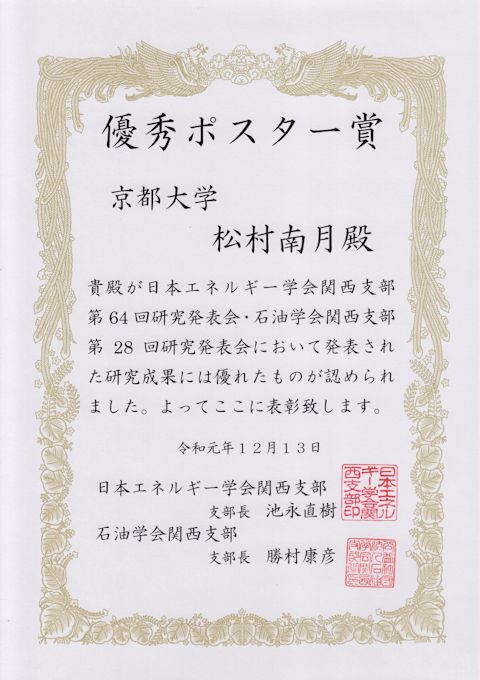 優秀ポスター賞
京都大学
松村南月殿
貴殿が日本エネルギー学会関西支部
第64回研究発表会・石油学会関西支部
第28回研究発表会において発表され
た研究成果には優れたものが認められ
ました。よってここに表彰致します。
令和元年12月13日
日本エネルギー学会関西支部
支部長 池永直樹
石油学会関西支部
支部長 勝村康彦
日本エネル
ギー学会関
西支部印